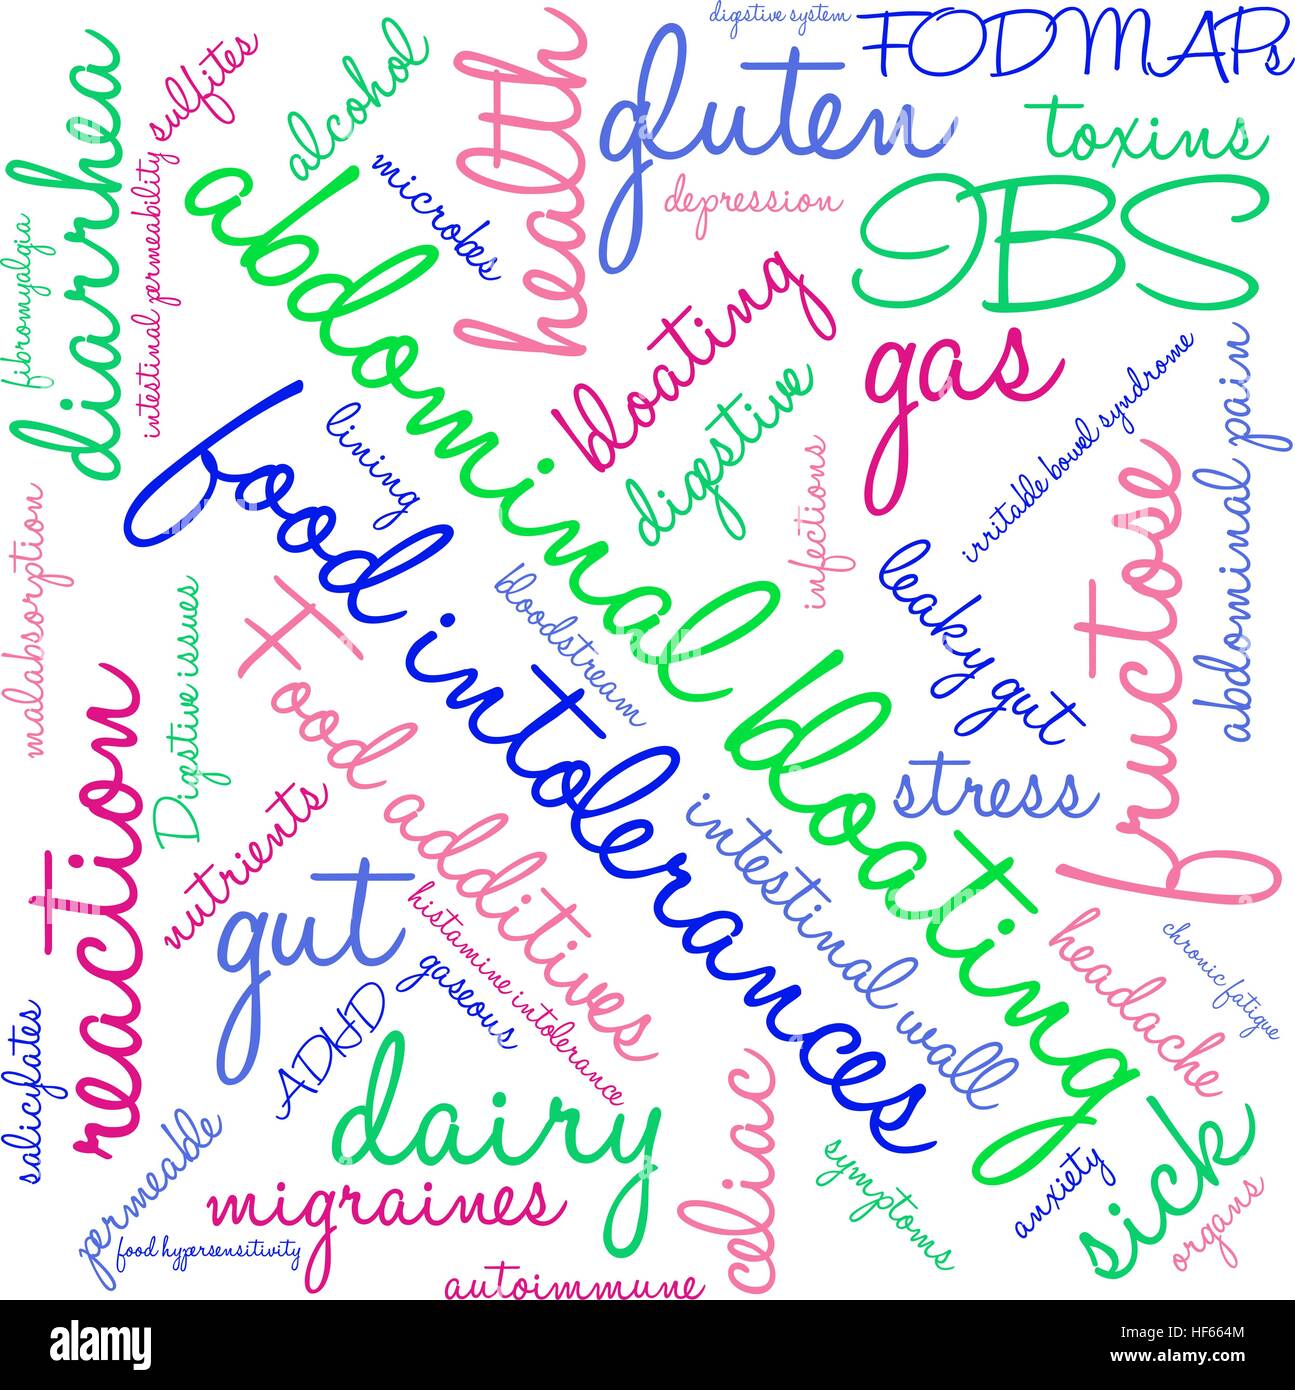 digestive system
FODMAPs
diarrhea
sulfites
alcohol
health
gluten
toxins
fibromyalgia
intestinal permeability
microbes
depression
IBS
abdominal bloating
bloating
gas
irritable bowel syndrome
abdominal pain
food intolerances
lining
digestive
infections
fructose
malabsorption
Digestive issues
Food additives
bloodstream
leaky gut
reaction
nutrients
stress
intestinal wall
gut
histamine intolerance
gaseous
headache
chronic fatigue
salicylates
ADHD
dairy
celiac
sick
permeable
migraines
symptoms
anxiety
organs
food hypersensitivity
autoimmune
alamy
a alamy
a
alamy
Image ID: HF664M
www.alamy.com